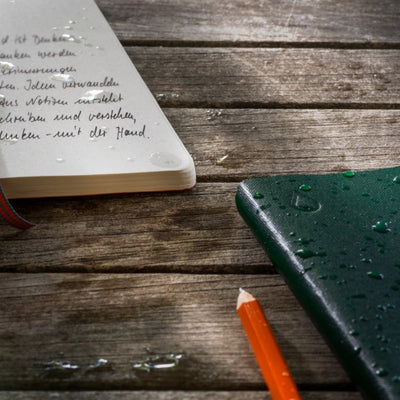 d ist Denken
anken werden
rinnerungen
ten Ideen verwandeln
Aus Notizen entsteht
chreiben und verstehen,
denken - mit der Hand.